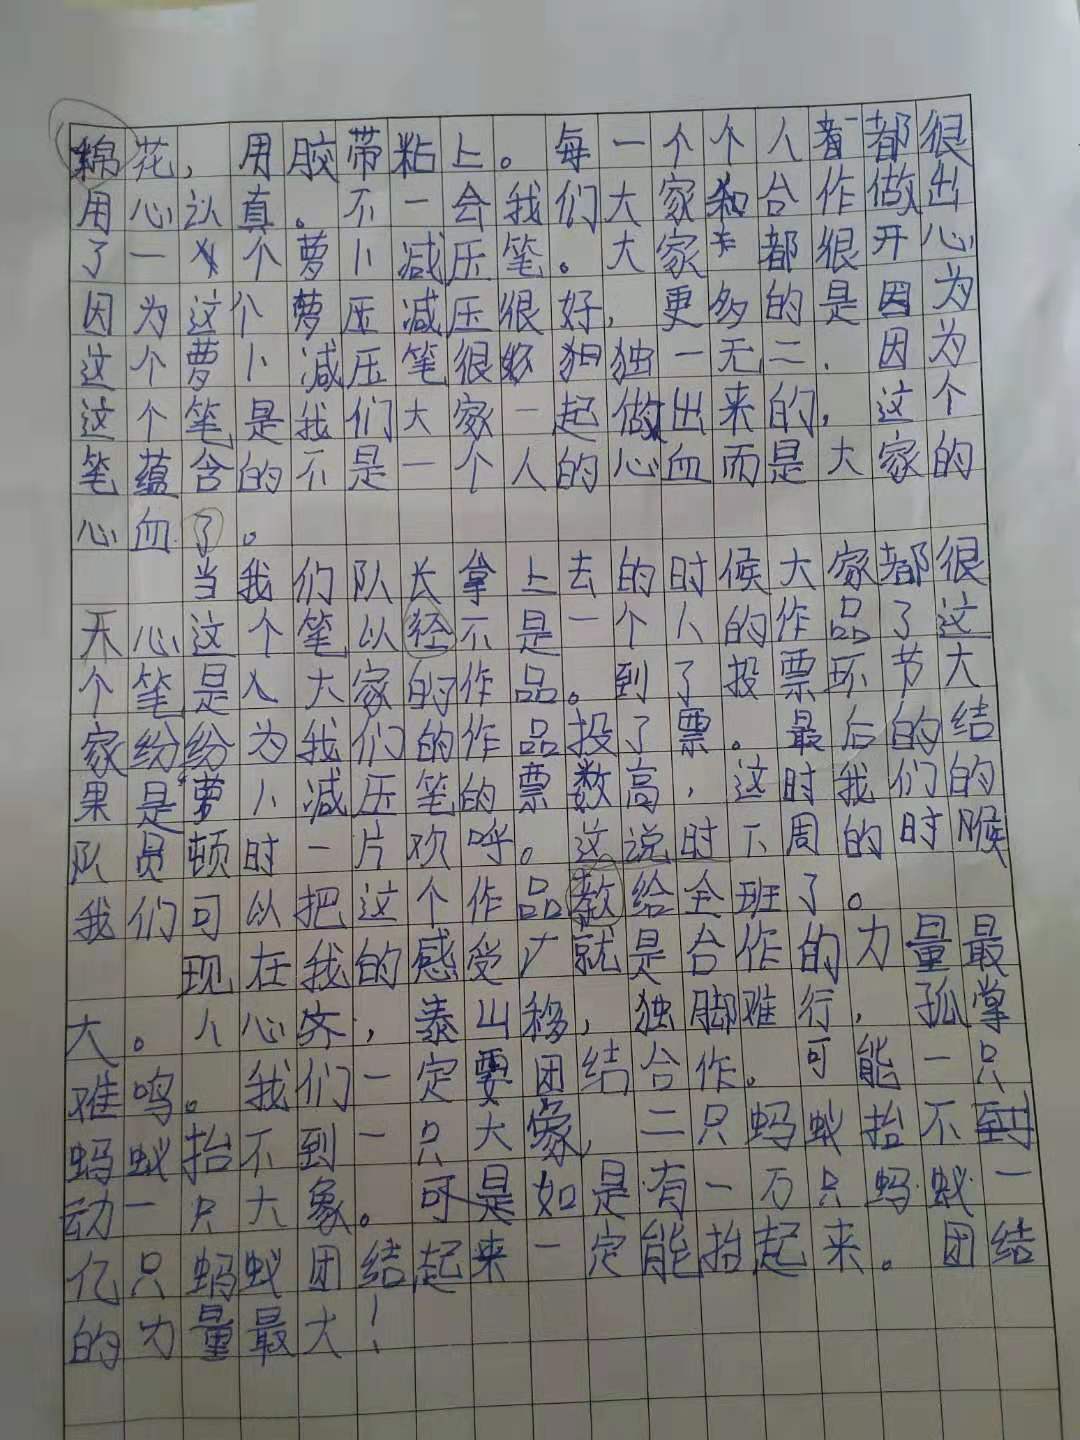 綿花，用胶带粘上。每一个个人都很
用心认真。不一会我们大家和合作做出
了一个个萝卜减压笔。大家都很开心
因为这个萝压减压很好，更多的是因为
这个萝卜减压笔很独一无二．因为
这个笔是我们大家一起做出来的，这个
笔蕴含的不是一个人的心血而是大家的
心血了。
当我们队长拿上去的时候大家都很
开心这个笔以径不是一个人的作品了这
个笔是大家的作品。到了投票环节大
家纷纷为我们的作品投了票。最后的结
果是萝卜减压笔的票数高，这时我们的
队员顿时一片欢呼。这说时下周的时候
我们可以把这个作品教给全班了。
现在我的感受就是合作的力量最
大。人心齐，泰山移，独脚难行，孤掌
难鸣。我们一定要团结合作。可能一只
蚂蚁抬不到一只大象，二只蚂蚁抬不到
动一只大象。可是如是有一万只蚂蚁一
亿只蚂蚁团结起来一定能抬起来。团结
的力量最大！